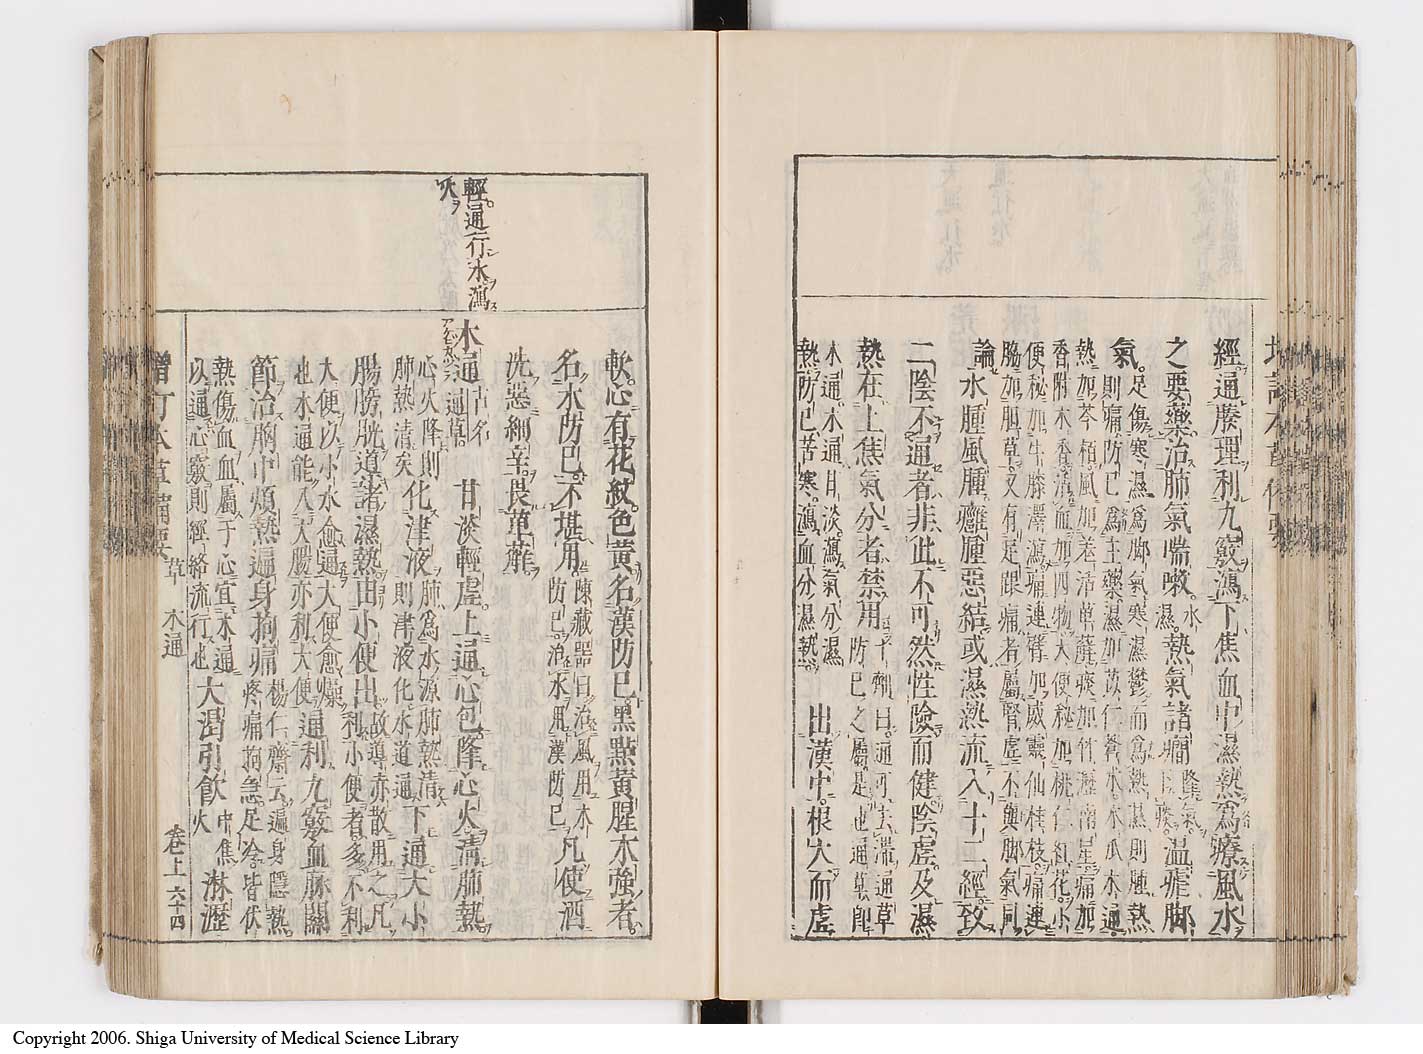 經通腠理利九竅瀉下焦血中濕熱為療風水
之要藥治肺氣喘嗽水濕熱氣諸癇降氣下痰溫瘧脚
氣足傷寒濕為脚氣寒濕鬱而為熱濕則腫熱
則痛防已為主藥濕加苡仁蒼朮木瓜木通
熱加芩栢風加羌活萆薢痰加竹瀝南星痛加
香附木香活血加四物大便秘加桃仁紅花小
便秘加牛膝澤瀉痛連臂加威靈仙桂枝痛連
脇加胆草又有足跟痛者屬腎虛不與脚氣同
論水腫風腫癰腫惡結或濕熱流入十二經致
二陰不通者非此不可然性險而健陰虛及濕
熱在上焦氣分者禁用十劑曰通可去滯通草
防已之屬是也通草即
木通木通甘淡瀉氣分濕
熱防已苦寒瀉血分濕熱出漢中根大而虛
軟心有花紋色黃名漢防已黑點黃腥木強者
名木防已不堪用陳藏器曰治風用木
防已治水用漢防已凡使酒
洗惡細辛畏萆薢
輕通行水瀉
火
木通古名
通草甘淡輕虛上通心包降心火清肺熱
心火降則
肺熱清矣化津液肺為水源肺熱清
則津液化水道通下通大小
腸膀胱導諸濕熱由小便出故導赤散用之凡
利小便者多不利
大便以小水愈通大便愈燥
也木通能入大腸亦利大便通利九竅血脉關
節治胸中煩熱遍身拘痛楊仁齋云遍身隱熱
疼痛拘急足冷皆伏
熱傷血血屬于心宜木通
以通心竅則經絡流行也大渴引飲中焦
火淋瀝
增訂本草備要
草
木通
卷上
六十四
Copyright 2006. Shiga University of Medical Science Library